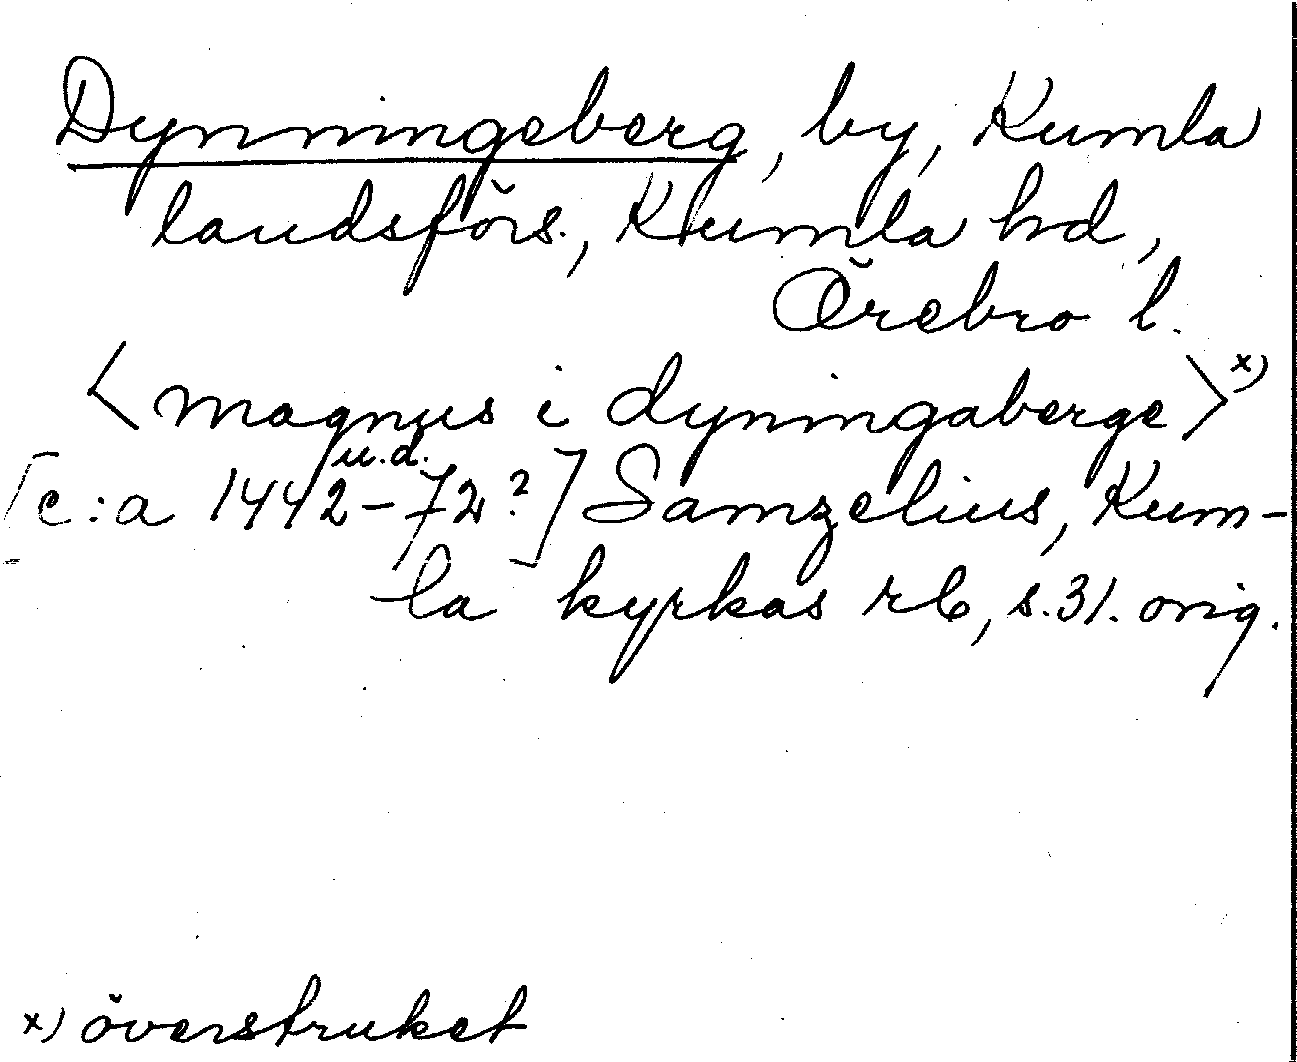 Dynningeberg, by, Kumla
landsförs., Kumla hd,
Örebro l.
<magnus i dyningaberge> x)
u.d.
[c:a 1442-72?] Samzelius, Kum-
la kyrkas rb, s.31. orig.
x) överstruket